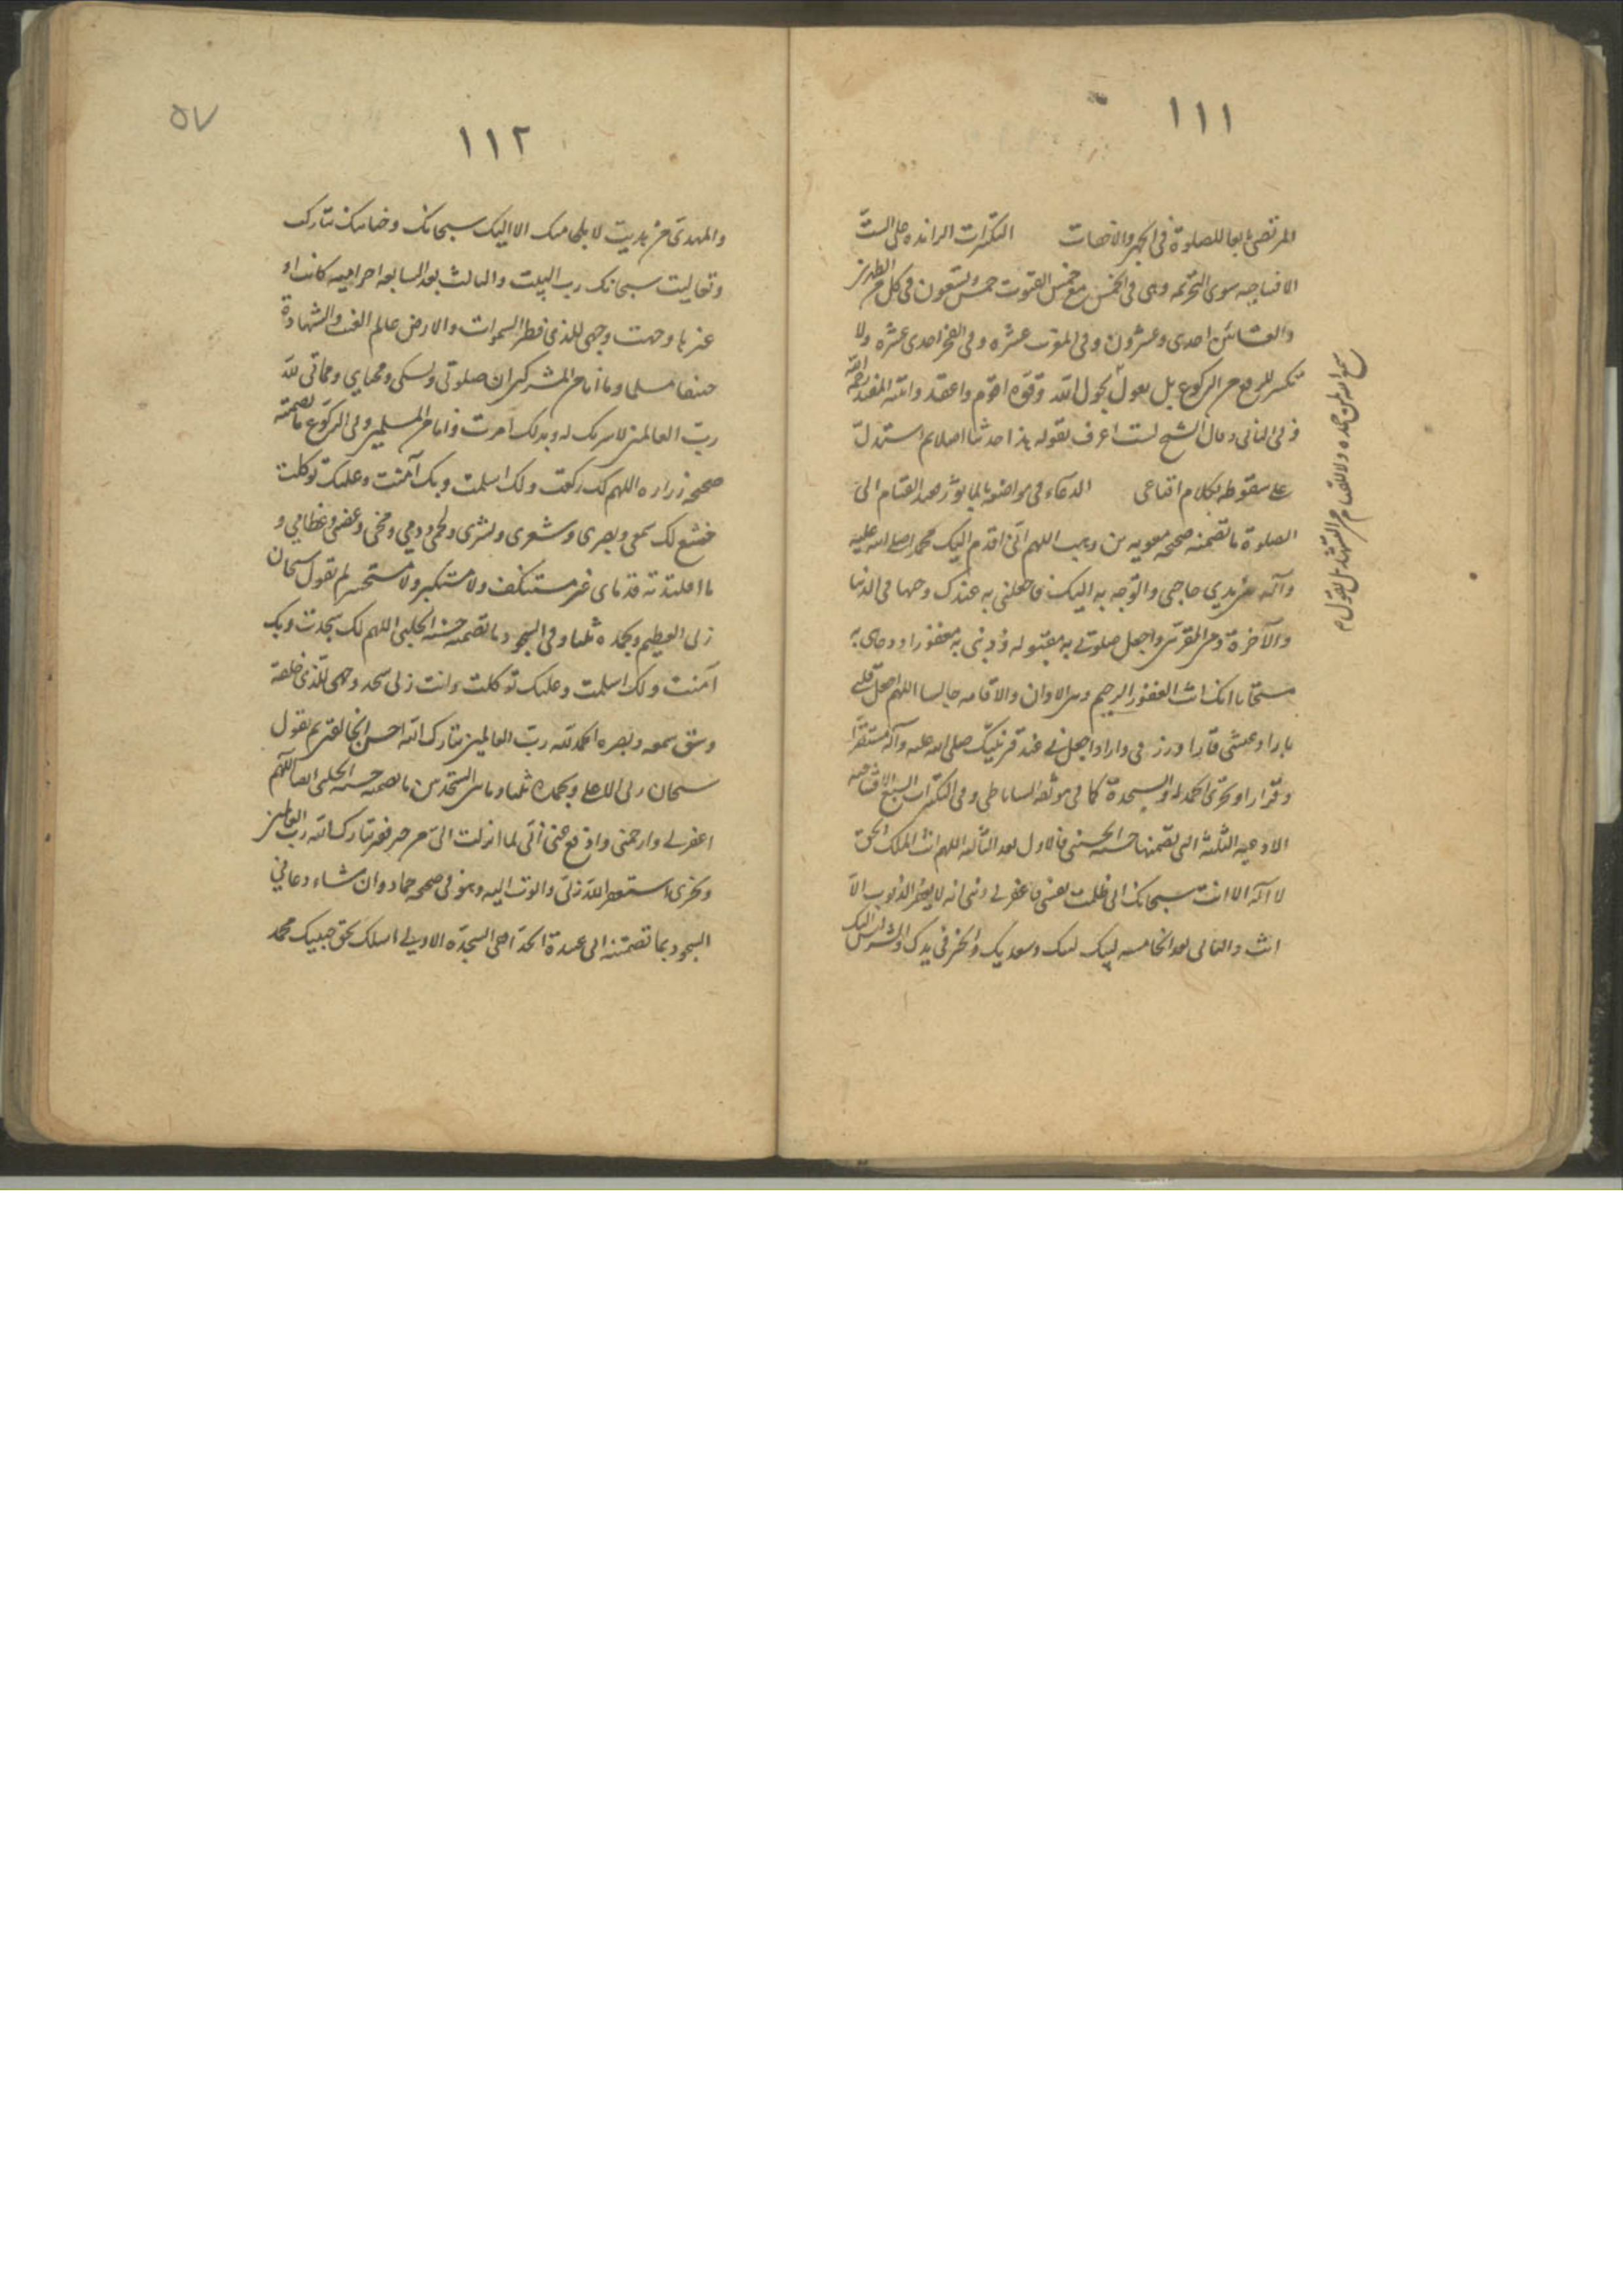 ١١١
المرتضى تابعا للصلوة في الجهر والاخفات التكبيرات الزائدة على الست
الافتتاحيه سوى التحريمه وهى فى الخمس مع خمس القنوت خمس وتسعون فى كل من الظهرين
والعشائين احدى وعشرون وفى المغرب عشره وفى الفجر احدى عشره ولا
تكبير للرفع من الركوع بل يقول بحول الله وقوته اقوم واقعد واثبته المفيد رحمه الله
فى الثانى وقال الشيخ لست اعرف بقوله هذا حديثا اصلا ثم استدل
على سقوطه بكلام اقناعى الدعاء فى مواضعه بالماثور فعند القيام الى
الصلوة ما تضمنه صحيحه معويه بن وهب اللهم انى اقدم اليك محمدا صلى الله عليه
وآله بين يدي حاجتى واتوجه به اليك فاجعلنى به عندك وجيها فى الدنيا
والآخرة ومن المقربين واجعل صلوتى به مقبوله وذنبى به مغفورا ودعائى به
مستجابا انك انت الغفور الرحيم وبين الاذان والاقامه جالسا اللهم اجعل قلبى
بارا وعيشى قارا ورزقى دارا واجعل لى عند قبر نبيك صلى الله عليه وآله مستقرا
وقرارا ويجزى الحمد لله والسجدة كما فى موثقه الساباطى وفى التكبيرات السبع الافتتاحيه
الادعيه الثلثة التى تضمنها حسنه الحلبى فالاول بعد الثالثه اللهم انت الملك الحق
لا آله الا انت سبحانك انى ظلمت نفسى فاغفر لى ذنبى انه لا يغفر الذنوب الا
انت والثانى بعد الخامسه لبيك لبيك وسعديك والخير فى يديك والشر ليس اليك
سمع الله لمن حمده ولا للقيام من التشهد بل يقول م
٥٧
١١٢
والمهدى من هديت لا ملجا منك الا اليك سبحانك وحنانيك تباركت
وتعاليت سبحانك رب البيت والثالث بعد السابعه احراميه كانت او
غيرها وجهت وجهى للذى فطر السموات والارض عالم الغيب والشهادة
حنيفا مسلما وما أنا من المشركين ان صلوتى ونسكى ومحياي ومماتى لله
رب العالمين لا شريك له وبذلك امرت وانا من المسلمين وفى الركوع ما تضمنته
صحيحه زراره اللهم لك ركعت ولك اسلمت وبك آمنت وعليك توكلت
خشع لك سمعى وبصرى وشعرى وبشرى ولحمى ودمي ومخى وعصبى وعظامي و
ما اقلته قدماى غير مستنكف ولا مستكبر ولا مستحسر ثم تقول سبحان
ربى العظيم وبحمده ثلثا وفى السجود ما تضمنه حسنه الحلبى اللهم لك سجدت وبك
آمنت ولك اسلمت وعليك توكلت وانت ربى سجد وجهى للذى خلقه
وشق سمعه وبصره الحمد لله رب العالمين تبارك الله احسن الخالقين ثم تقول
سبحان ربى الاعلى وبحمده ثلثا وما بين السجدتين ما تضمنه حسنه الحلبى ايضا اللهم
اغفر لى وارحمنى وادفع عنى انى لما انزلت الى من خير فقير تبارك الله رب العالمين
ويجزى استغفر الله ربى واتوب اليه وهو فى صحيحه حماد وان شاء دعا فى
السجود بما تضمنه ابى عبيدة الحذا فى السجدة الاولى اسلك بحق حبيبك محمد